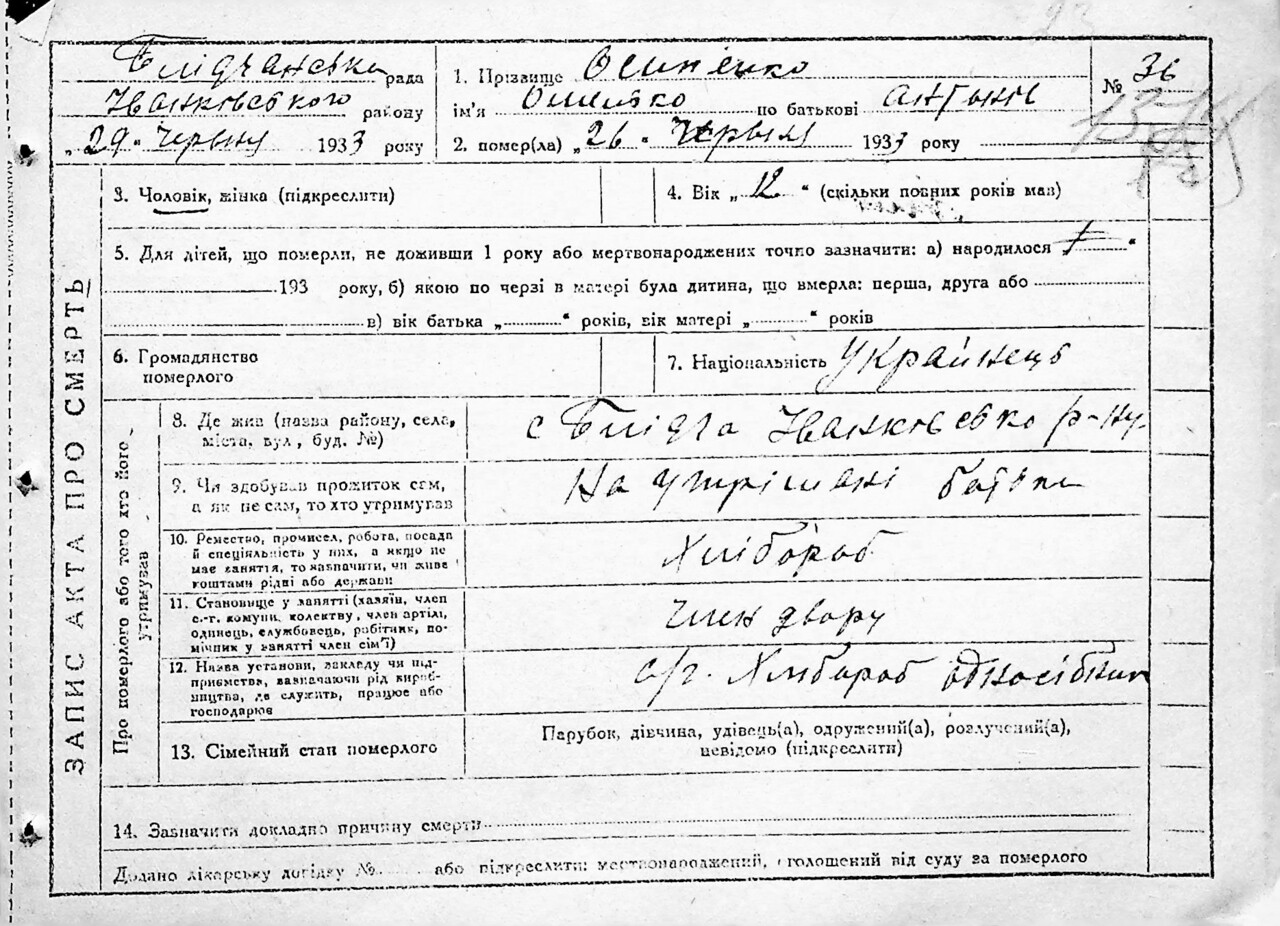 Блідчанська рада
Іванковського району
„29“ Червня 1933 року
1. Прізвище Осипенко
ім'я по батькові Антонів
2. помер(ла) „26“ Червня 1933 року
№ 36
ЗАПИС АКТА ПРО СМЕРТЬ
3. Чоловік, жінка (підкреслити)
4. Вік „12“ (скільки повних років мав)
5. Для дітей, що померли, не доживши 1 року або мертвонароджених точно зазначити: а) народилося „ “
193 року, б) якою по черзі в матері була дитина, що вмерла: перша, друга або
в) вік батька „ “ років, вік матері „ “ років
6. Громадянство
померлого
7. Національність Українець
Про померлого або того хто його
утримував
8. Де жив (назва району, села,
міста, вул., буд. №)
с Блідча Іванковсько р-ну
9. Чи здобував прожиток сам,
а як не сам, то хто утримував
На утрімані батьки
10. Ремество, промисел, робота, посада
й спеціяльність у них, а якщо не
має заняття, то зазначити, чи живе
коштами рідні або держави
Хлібороб
11. Становище у занятті (хазяїн, член
с.-г. комуни, колектву, член артілі,
одинець, службовець, робітник, по-
мічник у занятті член сім'ї)
член двору
12. Назва установи, закладу чи під-
приємства, зазначаючи рід вироб-
ництва, де служить, працює або
господарює
с/г. Хлібороб односібник
13. Сімейний стап померлого
Парубок, дівчина, удівець(а), одружений(а), розлучений(а),
невідомо (підкреслити)
14. Зазначити докладно причину смерти
Додано лікарську довідку № або підкреслити: мертвонароджений, оголошений від суду за померлого